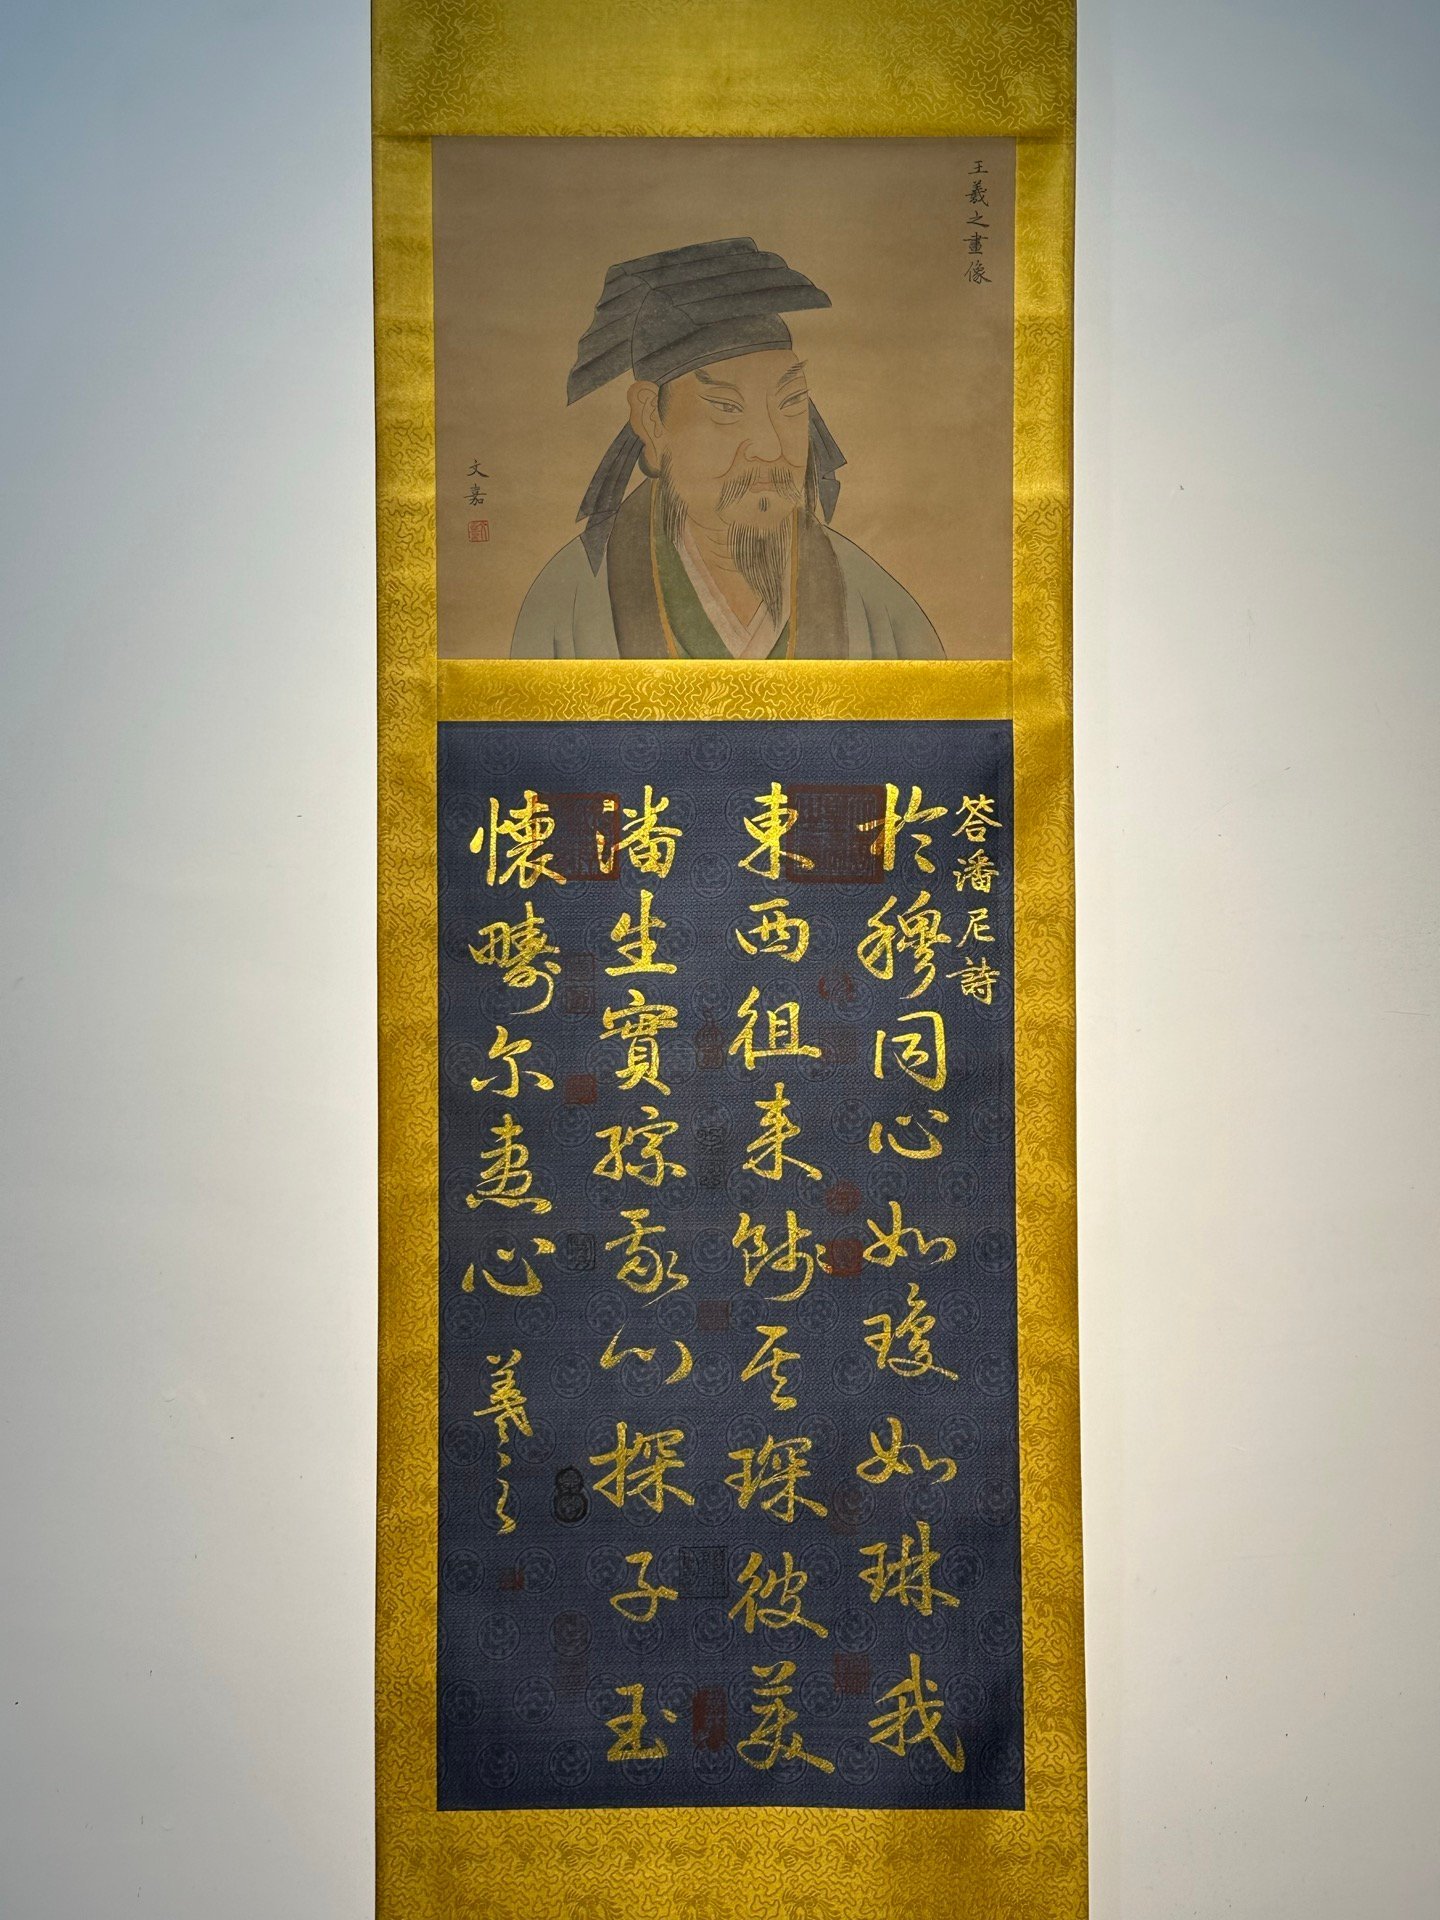 王羲之畫像
文嘉
答潘尼詩
於穆同心如瓊如琳我
東西徂来餞其琛彼美
潘生實綜我心探子玉
懷疇尔惠心
羲之